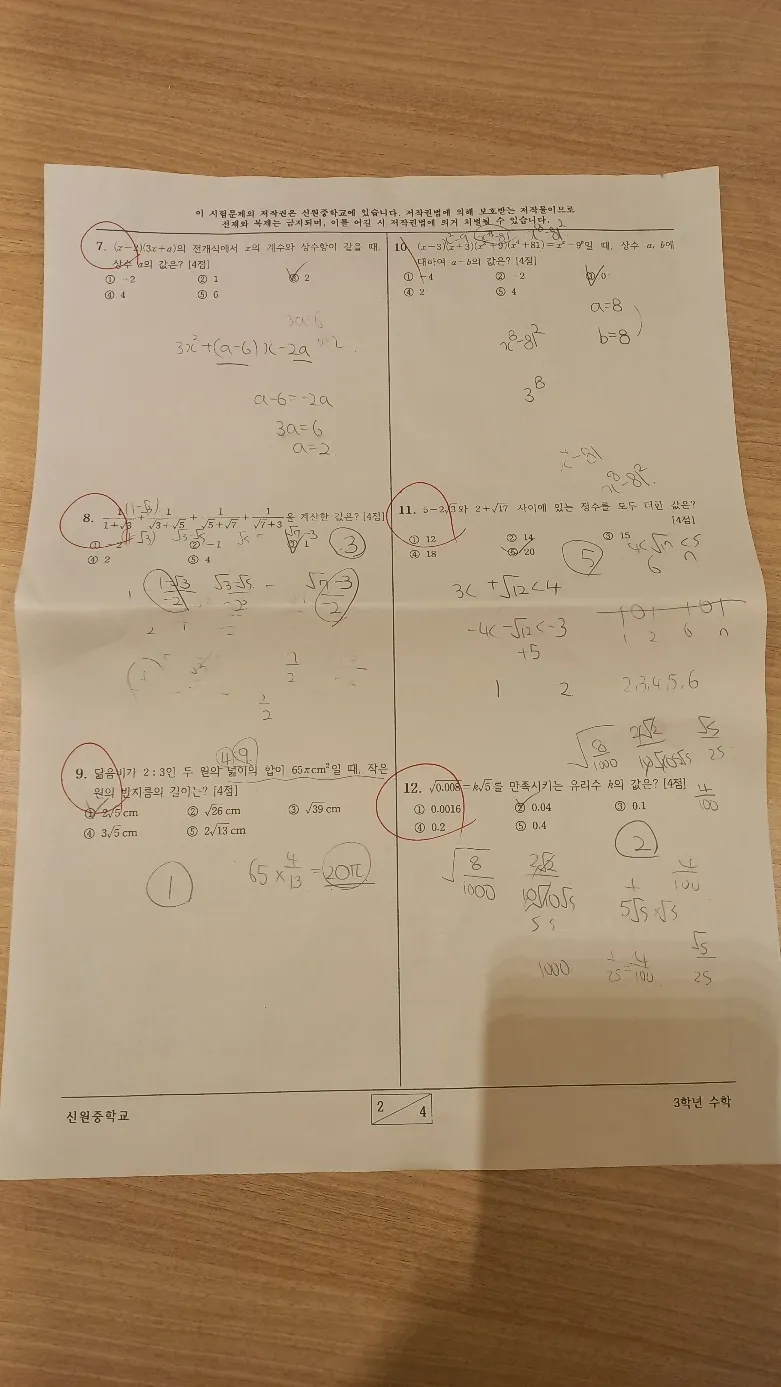 이 시험문제의 저작권은 신원중학교에 있습니다. 저작권법에 의해 보호받는 저작물이므로
전재와 복제는 금지되며, 이를 어길 시 저작권법에 의거 처벌될 수 있습니다.
7. (x-2)(3x+a)의 전개식에서 x의 계수와 상수항이 같을 때,
상수 a의 값은? [4점]
① -2 ② 1 ③ 2
④ 4 ⑤ 6
3x²+(a-6)x-2a
a-6=-2a
3a=6
a=2
8. 1/(1+√3) + 1/(√3+√5) + 1/(√5+√7) + 1/(√7+3) 을 계산한 값은? [4점]
① -2 ② -1 ③ 1
④ 2 ⑤ 4
③
(1-√3)/-2 (√3-√5)/-2 (√7-3)/-2
1/2
④ ⑨
9. 닮음비가 2 : 3인 두 원의 넓이의 합이 65πcm²일 때, 작은
원의 반지름의 길이는? [4점]
① 2√5 cm ② √26 cm ③ √39 cm
④ 3√5 cm ⑤ 2√13 cm
① 65×4/13=20π
10. (x-3)(x+3)(x²+9)(x⁴+81)=xᵃ-9ᵇ일 때, 상수 a, b에
대하여 a-b의 값은? [4점]
① -4 ② -2 ③ 0
④ 2 ⑤ 4
a=8
x⁸-81² b=8
3⁸
x⁸-81²
11. 5-2√3와 2+√17 사이에 있는 정수를 모두 더한 값은?
[4점]
① 12 ② 14 ③ 15
④ 18 ⑤ 20
⑤ 4<√17<5
6 7
3<+√12<4
-4<-√12<-3
+5
1 2 6 7
1 2 2,3,4,5,6
√(8/1000) √5/25
12. √0.008=k√5를 만족시키는 유리수 k의 값은? [4점]
① 0.0016 ② 0.04 ③ 0.1
④ 0.2 ⑤ 0.4
4/100
②
√(8/1000) 4/100
1000 1/25=4/100 √5/25
신원중학교
2 4
3학년 수학